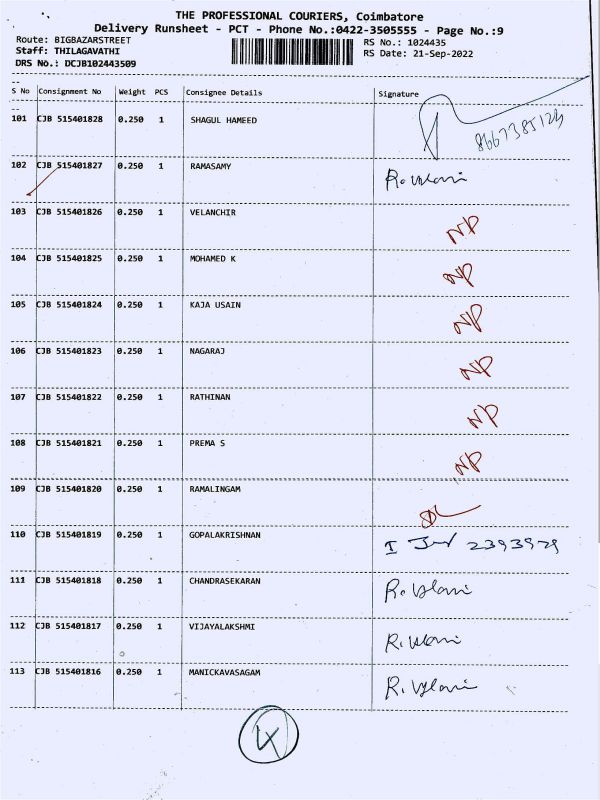 THE PROFESSIONAL COURIERS, Coimbatore
Delivery Runsheet - PCT - Phone No.:0422-3505555 - Page No.:9
Route: BIGBAZARSTREET
Staff: THILAGAVATHI
DRS No.: DCJB102443509
RS No.: 1024435
RS Date: 21-Sep-2022
S No Consignment No Weight PCS Consignee Details Signature
101 CJB 515401828 0.250 1 SHAGUL HAMEED 8667385123
102 CJB 515401827 0.250 1 RAMASAMY
103 CJB 515401826 0.250 1 VELANCHIR NP
104 CJB 515401825 0.250 1 MOHAMED K NP
105 CJB 515401824 0.250 1 KAJA USAIN NP
106 CJB 515401823 0.250 1 NAGARAJ NP
107 CJB 515401822 0.250 1 RATHINAN NP
108 CJB 515401821 0.250 1 PREMA S NP
109 CJB 515401820 0.250 1 RAMALINGAM
110 CJB 515401819 0.250 1 GOPALAKRISHNAN
111 CJB 515401818 0.250 1 CHANDRASEKARAN
112 CJB 515401817 0.250 1 VIJAYALAKSHMI
113 CJB 515401816 0.250 1 MANICKAVASAGAM